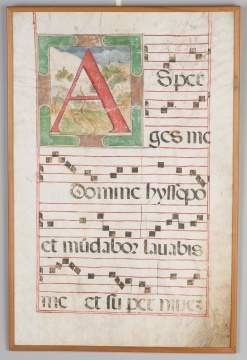 Asper
ges me
Domine hyssopo
et mūdabor lavabis
me et super nivez